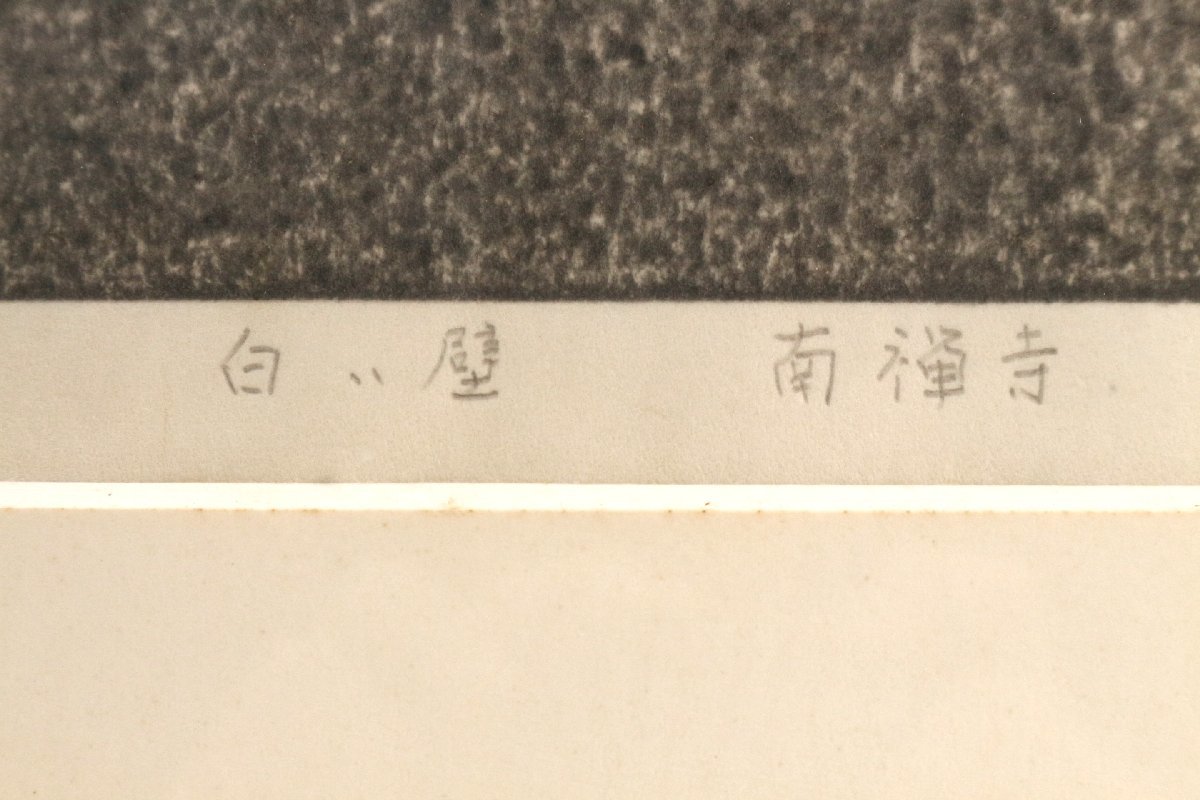 白い壁 南禅寺